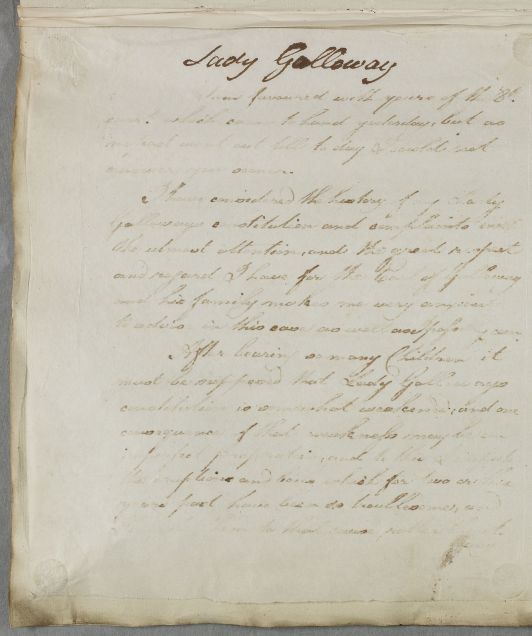 Lady Galloway
favoured with yours of the 8th
which came to hand yesterday, but as
went out till to day I could not
answer you sooner.
I have considered the history of my Lady
Galloways constitution and complaints with
the utmost attention, and the great respect
and regard I have for the Earl of Galloway
and his family makes me very anxious
to advise in this case as well as possibly I can
After bearing so many Children it
must be supposed that Lady Galloways
constitution is somewhat weakened, and one
consequence of that weakness may be an
imperfect perspiration, and to this I
the eruptions and which for two or three
years past have been so troublesome, and
to that same